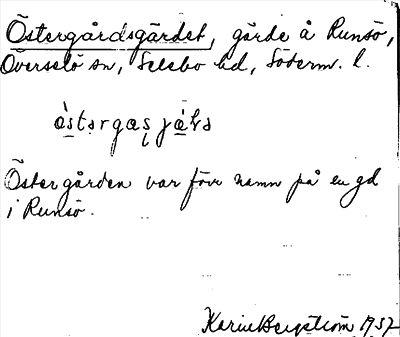 Östergårdsgärdet, gärde å Runsö,
Överselö sn, Selebo hd, Söderm. l.
Östergården var förr namn på en gd
i Runsö.
Karin Bergström 1937